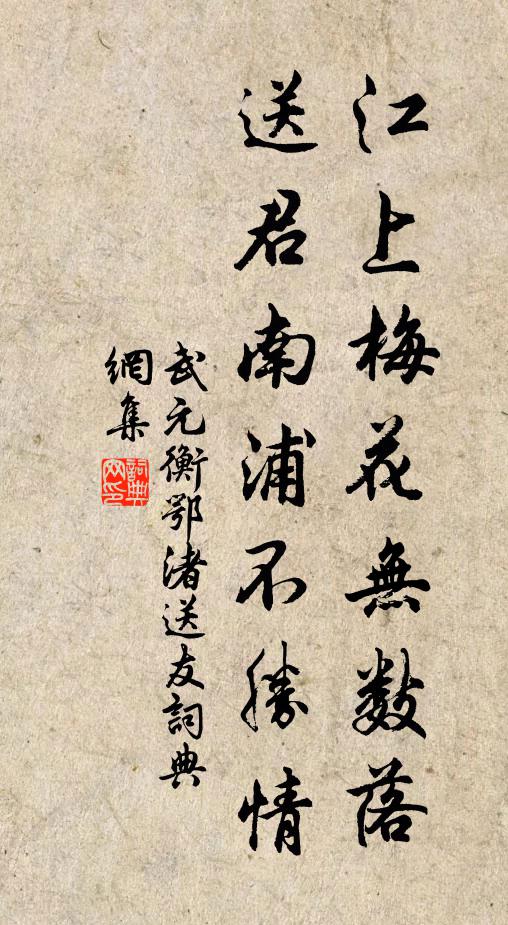 江上梅花無數落
送君南浦不勝情
武元衡鄂渚送友詞典
網集
詞典
网印